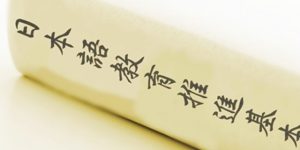 日本語教育推進基本